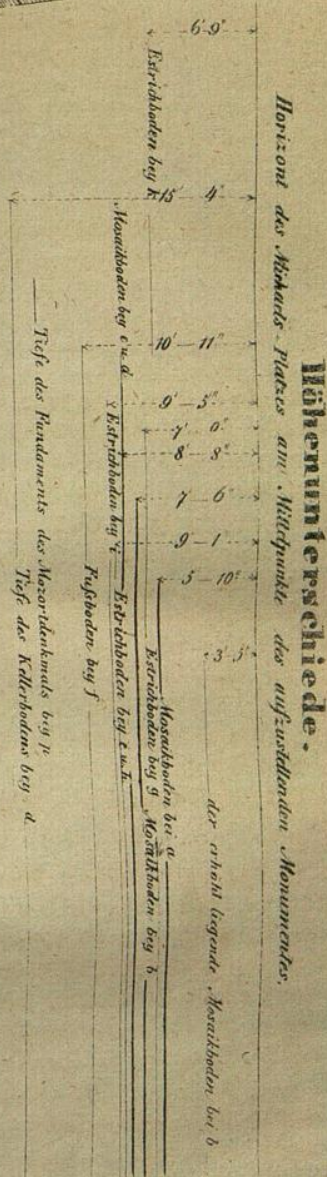 Höhenunterschiede.
Horizont des Michaels-Platzes am Mittelpunkte des aufzustellenden Monumentes.
6' 9"
15' 4"
10' 11"
9' 5"
7' 9"
8' 8"
7 6"
9 1
5 10"
3' 5"
der erhöht liegende Mosaikboden bei b
Estrichboden bey k
Mosaikboden bei a
Estrichboden bey g Mosaikboden bey b
Mosaikboden bey c u. d
Estrichboden bey e u. h.
Estrichboden bey i
Fußboden bey f
Tiefe des Fundaments des Mozartdenkmals bey p
Tiefe des Kellerbodens bey d